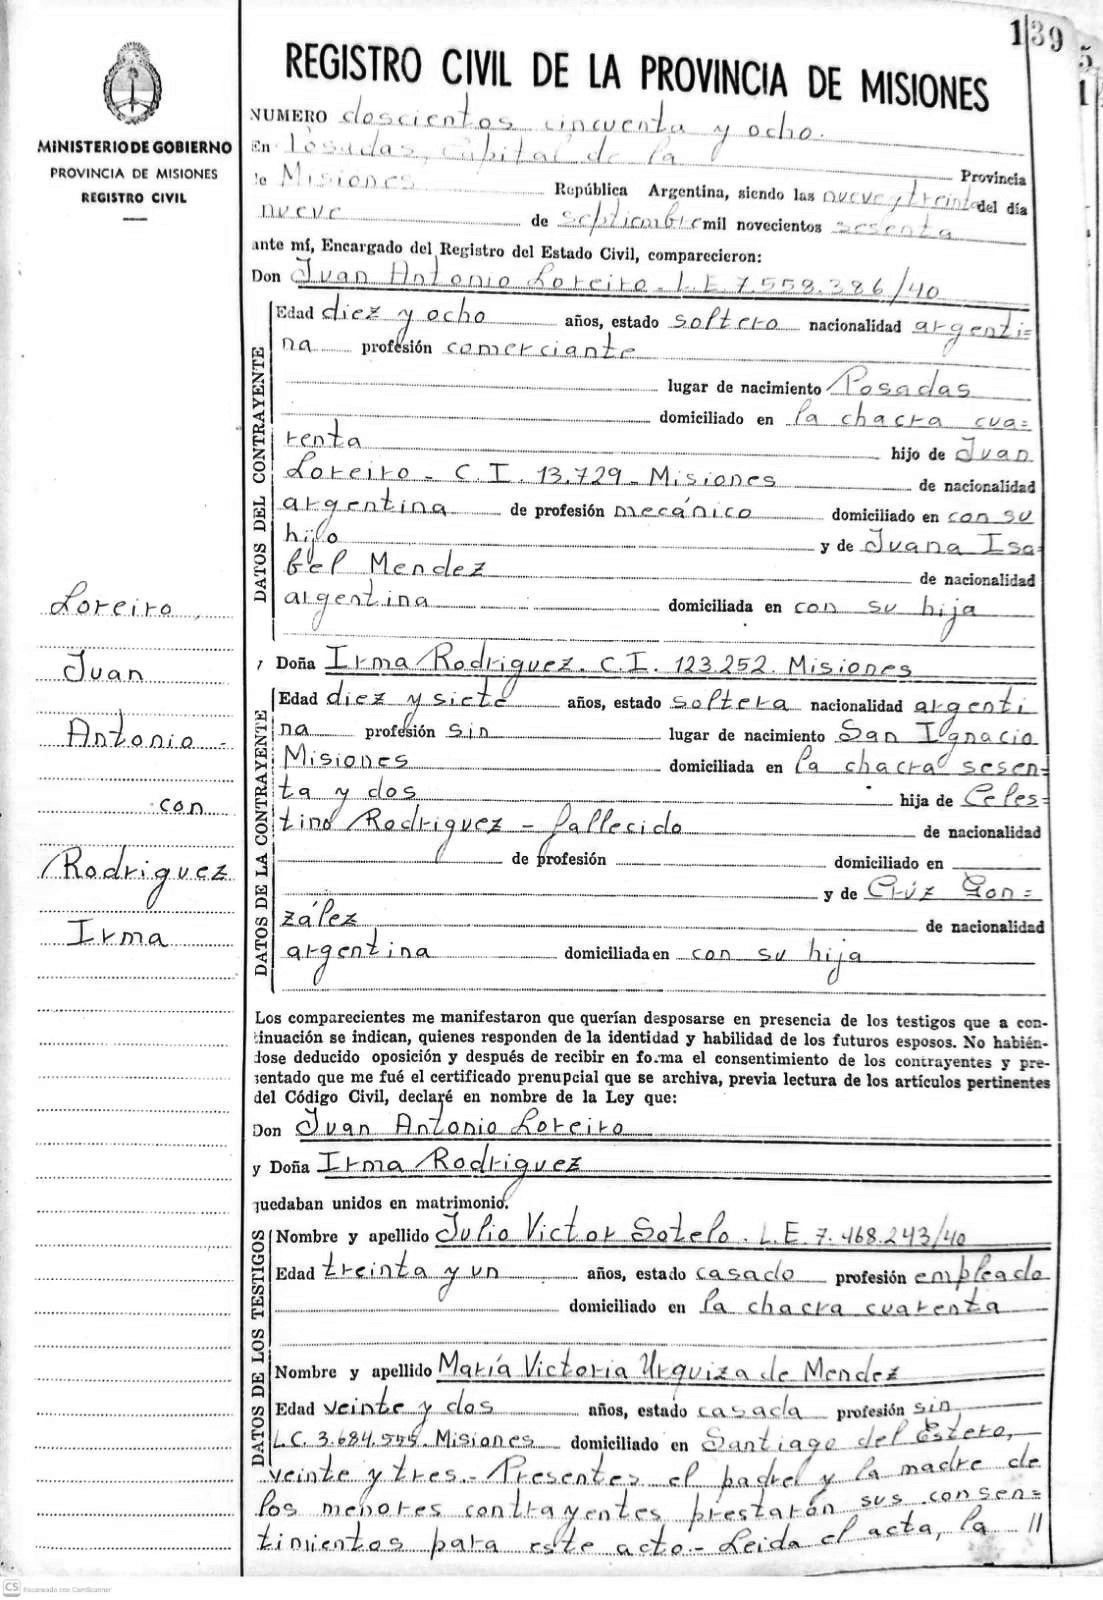 139
5
1
MINISTERIO DE GOBIERNO
PROVINCIA DE MISIONES
REGISTRO CIVIL
Loreiro,
Juan
Antonio -
con
Rodriguez
Irma
REGISTRO CIVIL DE LA PROVINCIA DE MISIONES
NUMERO doscientos cincuenta y ocho.
En Posadas, Capital de la Provincia
de Misiones República Argentina, siendo las nueve y treinta del día
nueve de septiembre mil novecientos sesenta
ante mí, Encargado del Registro del Estado Civil, comparecieron:
Don Juan Antonio Loreiro. L.E 7.558.386/40
DATOS DEL CONTRAYENTE
Edad diez y ocho años, estado soltero nacionalidad argenti=
na profesión comerciante
lugar de nacimiento Posadas
domiciliado en la chacra cua=
renta hijo de Juan
Loreiro - C.I. 13.729 - Misiones de nacionalidad
argentina de profesión mecánico domiciliado en con su
hijo y de Juana Isa
bel Mendez de nacionalidad
argentina domiciliada en con su hija
y Doña Irma Rodriguez. C.I. 123.252. Misiones
DATOS DE LA CONTRAYENTE
Edad diez y siete años, estado soltera nacionalidad argenti
na profesión sin lugar de nacimiento San Ignacio
Misiones domiciliada en la chacra sesen=
ta y dos hija de Celes=
tino Rodriguez - fallecido de nacionalidad
de profesión domiciliado en
y de Crúz Gon=
zález de nacionalidad
argentina domiciliada en con su hija
Los comparecientes me manifestaron que querían desposarse en presencia de los testigos que a con-
tinuación se indican, quienes responden de la identidad y habilidad de los futuros esposos. No habién-
dose deducido oposición y después de recibir en forma el consentimiento de los contrayentes y pre-
sentado que me fué el certificado prenupcial que se archiva, previa lectura de los artículos pertinentes
del Código Civil, declaré en nombre de la Ley que:
Don Juan Antonio Loreiro
y Doña Irma Rodriguez
quedaban unidos en matrimonio.
DATOS DE LOS TESTIGOS
Nombre y apellido Julio Victor Sotelo. L.E. 7.468.243/40
Edad treinta y un años, estado casado profesión empleado
domiciliado en la chacra cuarenta
Nombre y apellido María Victoria Urquiza de Mendez
Edad veinte y dos años, estado casada profesión sin
L.C. 3.684.555. Misiones domiciliado en Santiago del Estero,
veinte y tres.- Presentes el padre y la madre de
los menores contrayentes prestarón sus consen=
timientos para este acto.- Leida el acta, la //
CS Escaneado con CamScanner